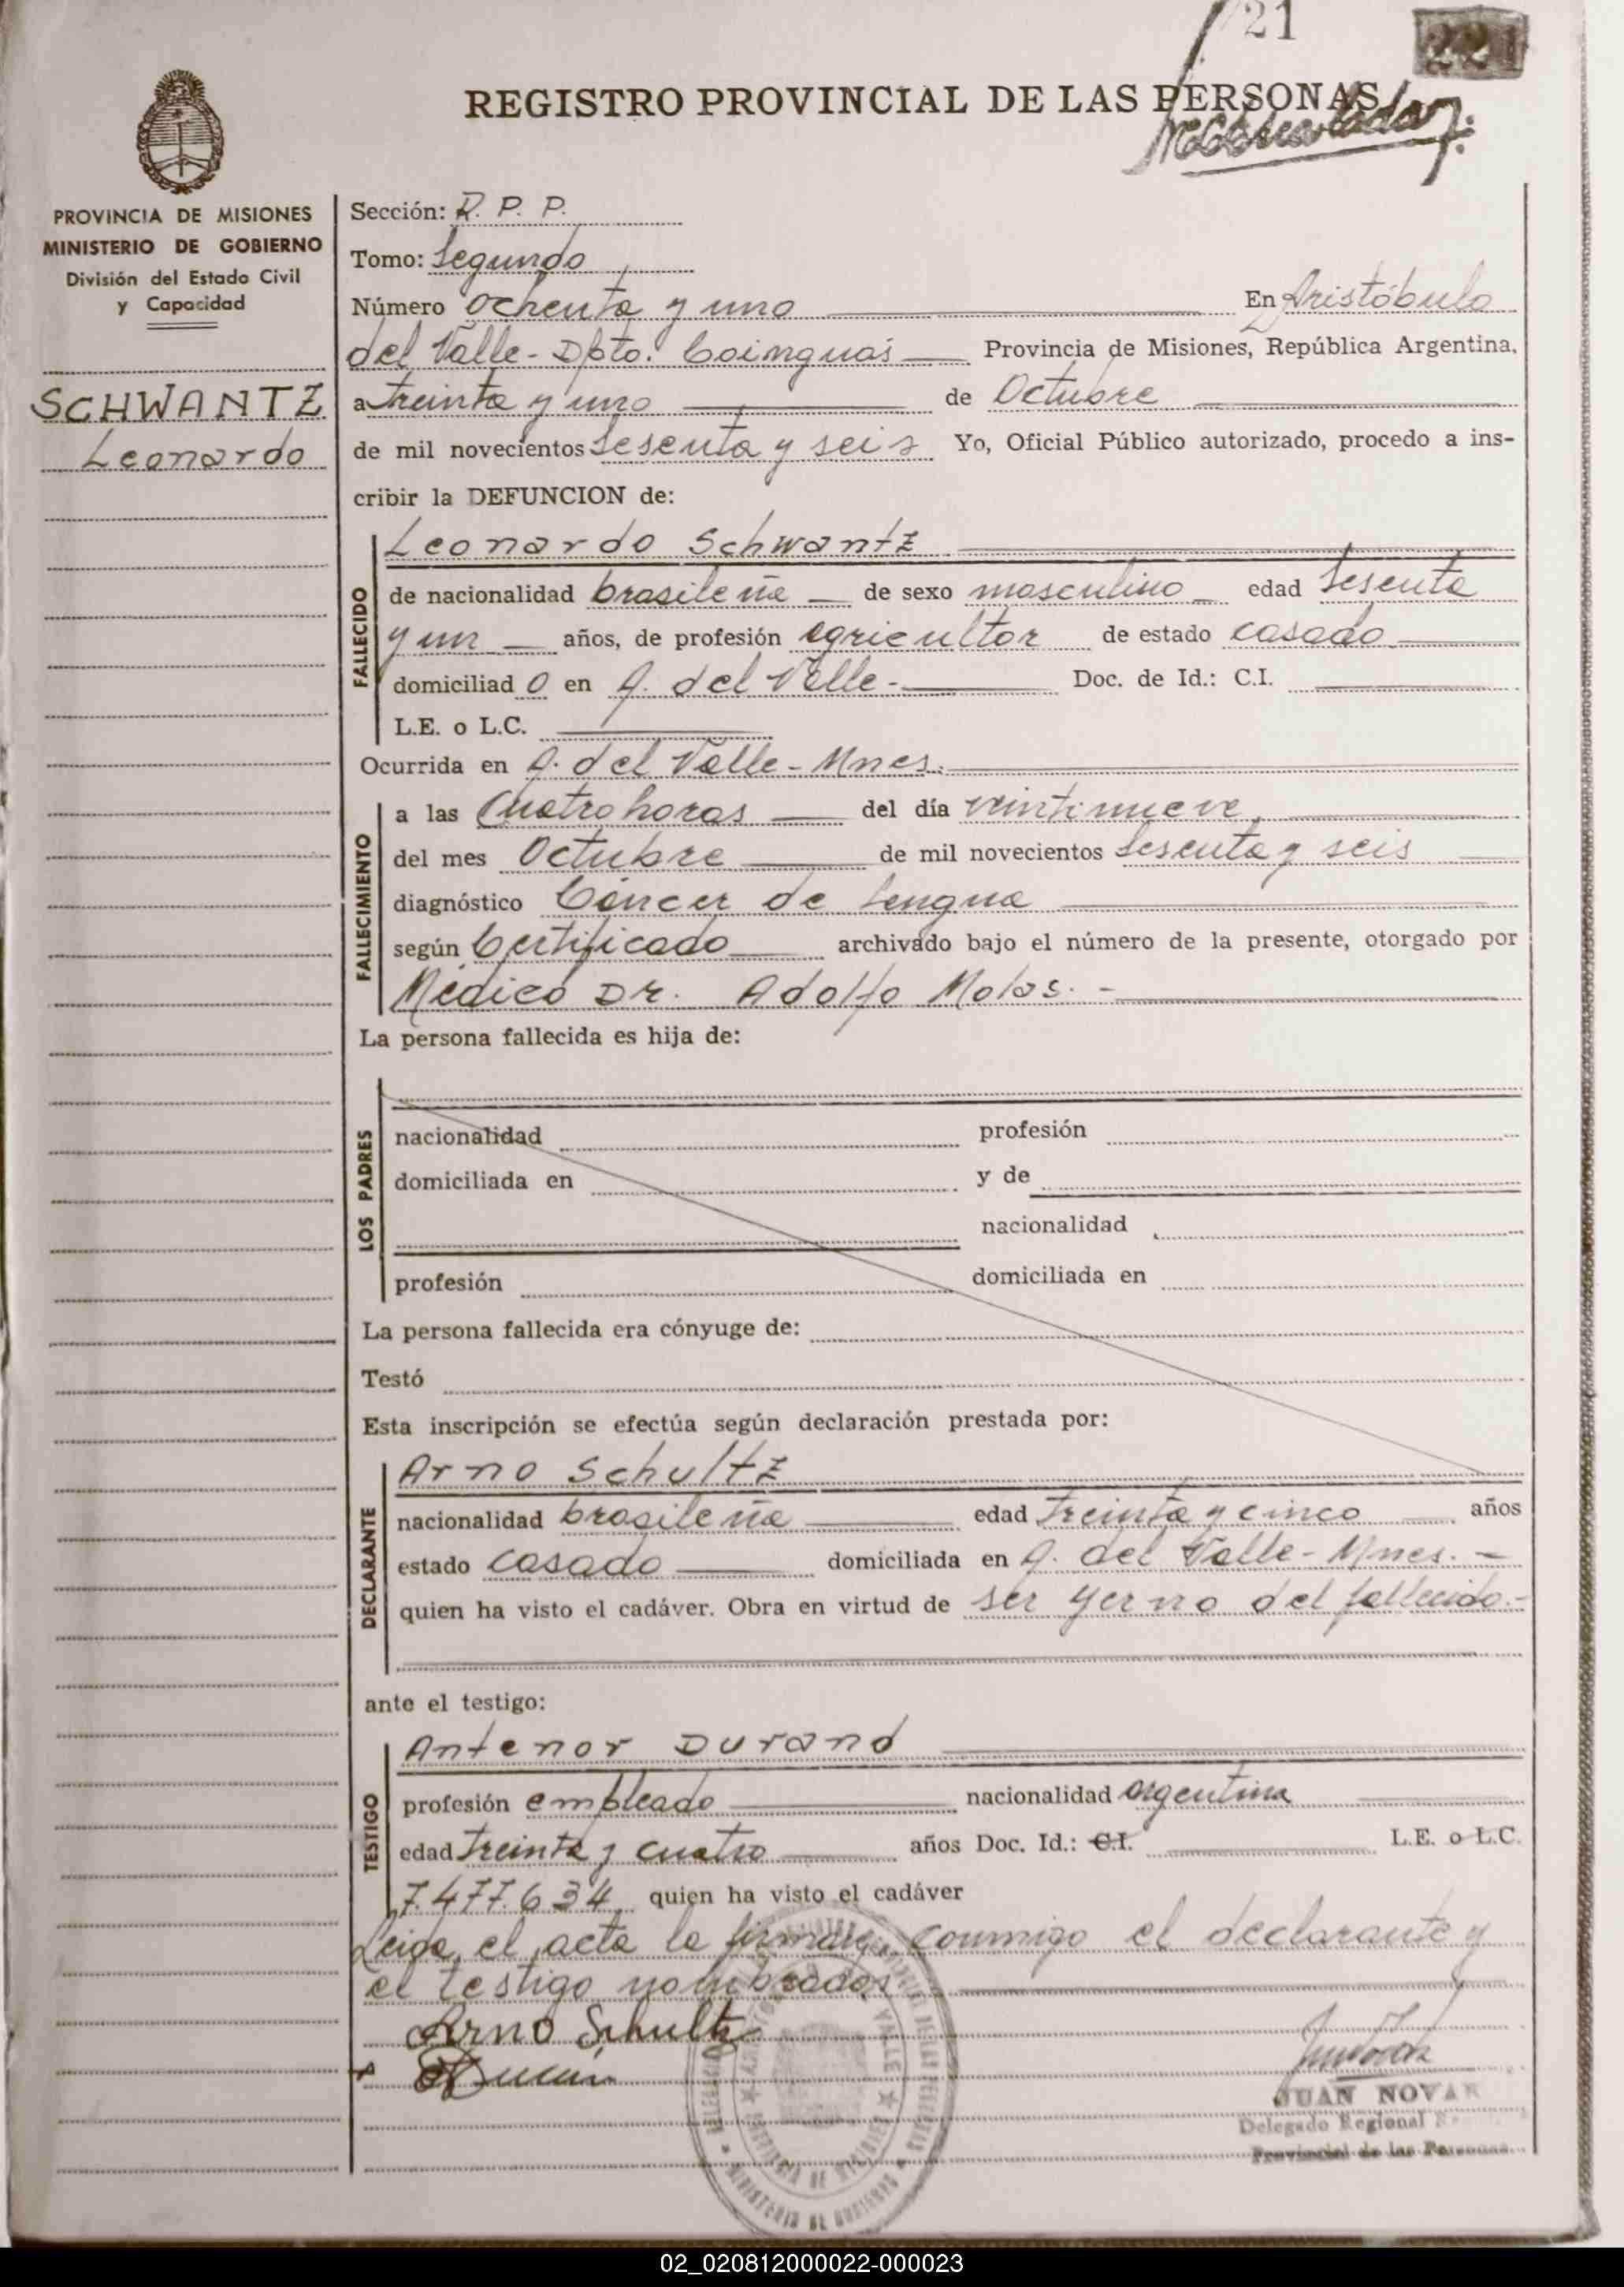 21
221
REGISTRO PROVINCIAL DE LAS PERSONAS
PROVINCIA DE MISIONES
MINISTERIO DE GOBIERNO
División del Estado Civil
y Capacidad
SCHWANTZ
Leonardo
Sección: R. P. P.
Tomo: Segundo
Número Ochenta y uno En Aristóbulo
del Valle - Dpto. Cainguás Provincia de Misiones, República Argentina,
a treinta y uno de Octubre
de mil novecientos sesenta y seis Yo, Oficial Público autorizado, procedo a ins-
cribir la DEFUNCION de:
FALLECIDO
Leonardo Schwantz
de nacionalidad brasileña de sexo masculino edad sesenta
y un años, de profesión agricultor de estado casado
domiciliad o en A. del Valle.- Doc. de Id.: C.I.
L.E. o L.C.
Ocurrida en A. del Valle - Mnes.
FALLECIMIENTO
a las Cuatro horas del día veintinueve
del mes Octubre de mil novecientos sesenta y seis
diagnóstico Cáncer de Lengua
según Certificado archivado bajo el número de la presente, otorgado por
Médico Dr. Adolfo Molas. -
La persona fallecida es hija de:
LOS PADRES
nacionalidad profesión
domiciliada en y de
nacionalidad
profesión domiciliada en
La persona fallecida era cónyuge de:
Testó
Esta inscripción se efectúa según declaración prestada por:
DECLARANTE
Arno Schultz
nacionalidad brasileña edad treinta y cinco años
estado casado domiciliada en A. del Valle - Mnes. -
quien ha visto el cadáver. Obra en virtud de ser yerno del fallecido.-
ante el testigo:
TESTIGO
Antenor Durand
profesión empleado nacionalidad argentina
edad treinta y cuatro años Doc. Id.: C.I. L.E. o L.C.
7.477.634 quien ha visto el cadáver
Leida el acta la firman conmigo el declarante y
el testigo nombrados
Arno Schultz
JUAN NOVAK
Delegado Regional
Provincial de las Personas
02_020812000022-000023